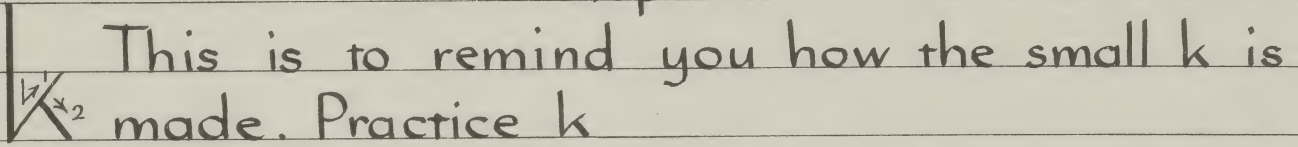 This is to remind you how the small k is
k 1 2 made. Practice k